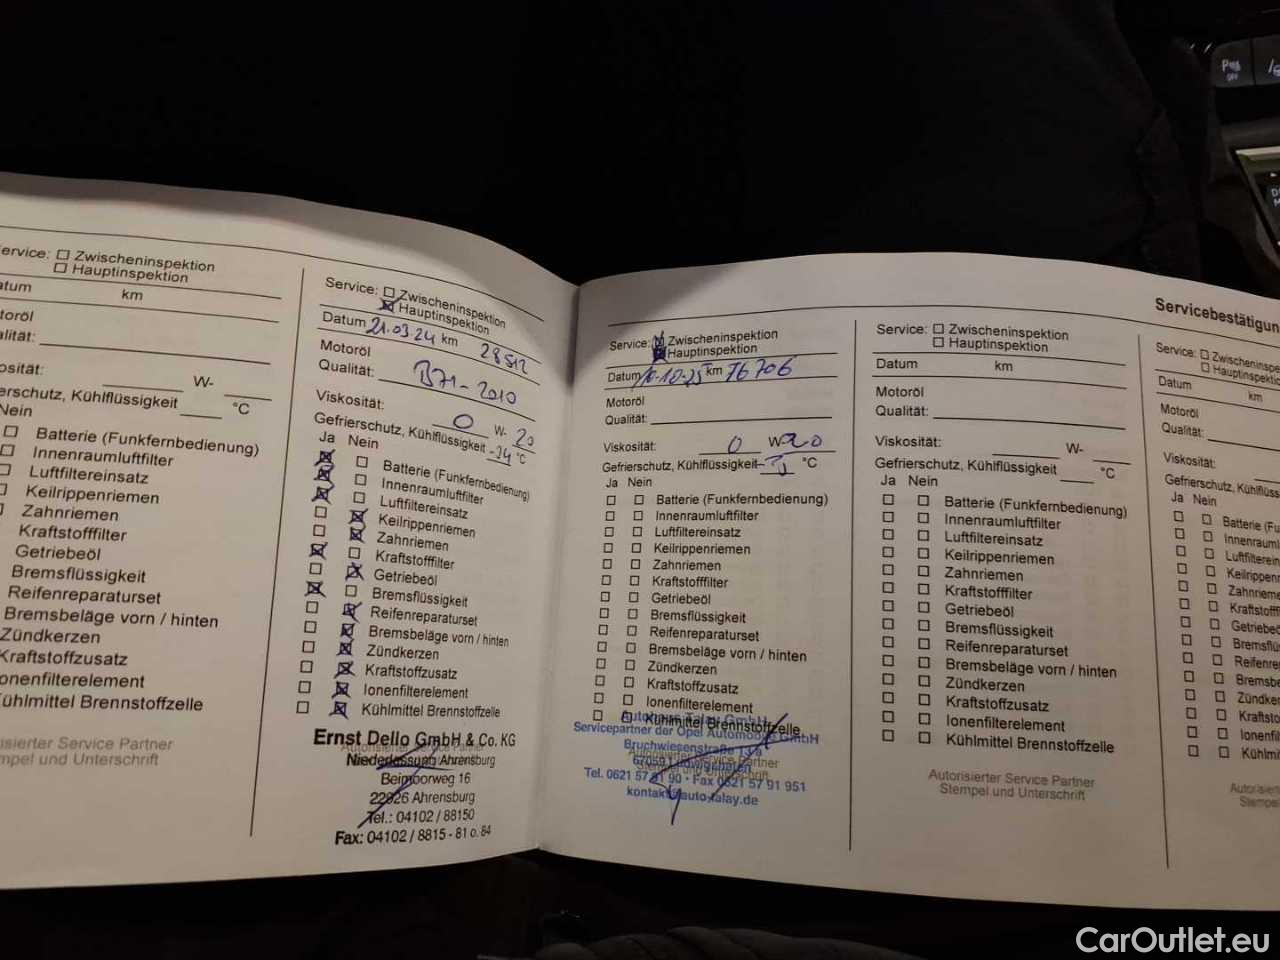 Servicebestätigun
ervice: Zwischeninspektion
Hauptinspektion
atum km
toröl
alität:
osität: W-
erschutz, Kühlflüssigkeit °C
Nein
Batterie (Funkfernbedienung)
Innenraumluftfilter
Luftfiltereinsatz
Keilrippenriemen
Zahnriemen
Kraftstofffilter
Getriebeöl
Bremsflüssigkeit
Reifenreparaturset
Bremsbeläge vorn / hinten
Zündkerzen
Kraftstoffzusatz
onenfilterelement
ühlmittel Brennstoffzelle
isierter Service Partner
mpel und Unterschrift
Service: Zwischeninspektion
Hauptinspektion
Datum 21.03.24 km 28512
Motoröl
Qualität: B71-2010
Viskosität: 0 W- 20
Gefrierschutz, Kühlflüssigkeit -34 °C
Ja Nein
Batterie (Funkfernbedienung)
Innenraumluftfilter
Luftfiltereinsatz
Keilrippenriemen
Zahnriemen
Kraftstofffilter
Getriebeöl
Bremsflüssigkeit
Reifenreparaturset
Bremsbeläge vorn / hinten
Zündkerzen
Kraftstoffzusatz
Ionenfilterelement
Kühlmittel Brennstoffzelle
Autorisierter Service Partner
Ernst Dello GmbH & Co. KG
Niederlassung Ahrensburg
Beimoorweg 16
22926 Ahrensburg
Tel.: 04102 / 88150
Fax: 04102 / 8815 - 81 o. 84
Service: Zwischeninspektion
Hauptinspektion
Datum 10-12-25 km 76706
Motoröl
Qualität:
Viskosität: 0 W- 20
Gefrierschutz, Kühlflüssigkeit °C
Ja Nein
Batterie (Funkfernbedienung)
Innenraumluftfilter
Luftfiltereinsatz
Keilrippenriemen
Zahnriemen
Kraftstofffilter
Getriebeöl
Bremsflüssigkeit
Reifenreparaturset
Bremsbeläge vorn / hinten
Zündkerzen
Kraftstoffzusatz
Ionenfilterelement
Kühlmittel Brennstoffzelle
Autohaus Talay GmbH
Servicepartner der Opel Automobile GmbH
Bruchwiesenstraße
Autorisierter Service Partner
67059 Ludwigshafen
Stempel und Unterschrift
Tel. 0621 57 91 90 · Fax 0621 57 91 951
kontakt@auto-talay.de
Service: Zwischeninspektion
Hauptinspektion
Datum km
Motoröl
Qualität:
Viskosität: W-
Gefrierschutz, Kühlflüssigkeit °C
Ja Nein
Batterie (Funkfernbedienung)
Innenraumluftfilter
Luftfiltereinsatz
Keilrippenriemen
Zahnriemen
Kraftstofffilter
Getriebeöl
Bremsflüssigkeit
Reifenreparaturset
Bremsbeläge vorn / hinten
Zündkerzen
Kraftstoffzusatz
Ionenfilterelement
Kühlmittel Brennstoffzelle
Autorisierter Service Partner
Stempel und Unterschrift
Service: Zwischeninspe
Hauptinspekti
Datum km
Motoröl
Qualität:
Viskosität:
Gefrierschutz, Kühlflüss
Ja Nein
Batterie (Fu
Innenrauml
Luftfilterein
Keilrippen
Zahnrieme
Kraftstofff
Getriebeö
Bremsflü
Reifenre
Bremsbe
Zündker
Kraftsto
Ionenfi
Kühlmi
Autoris
Stempe
OFF
CarOutlet.eu